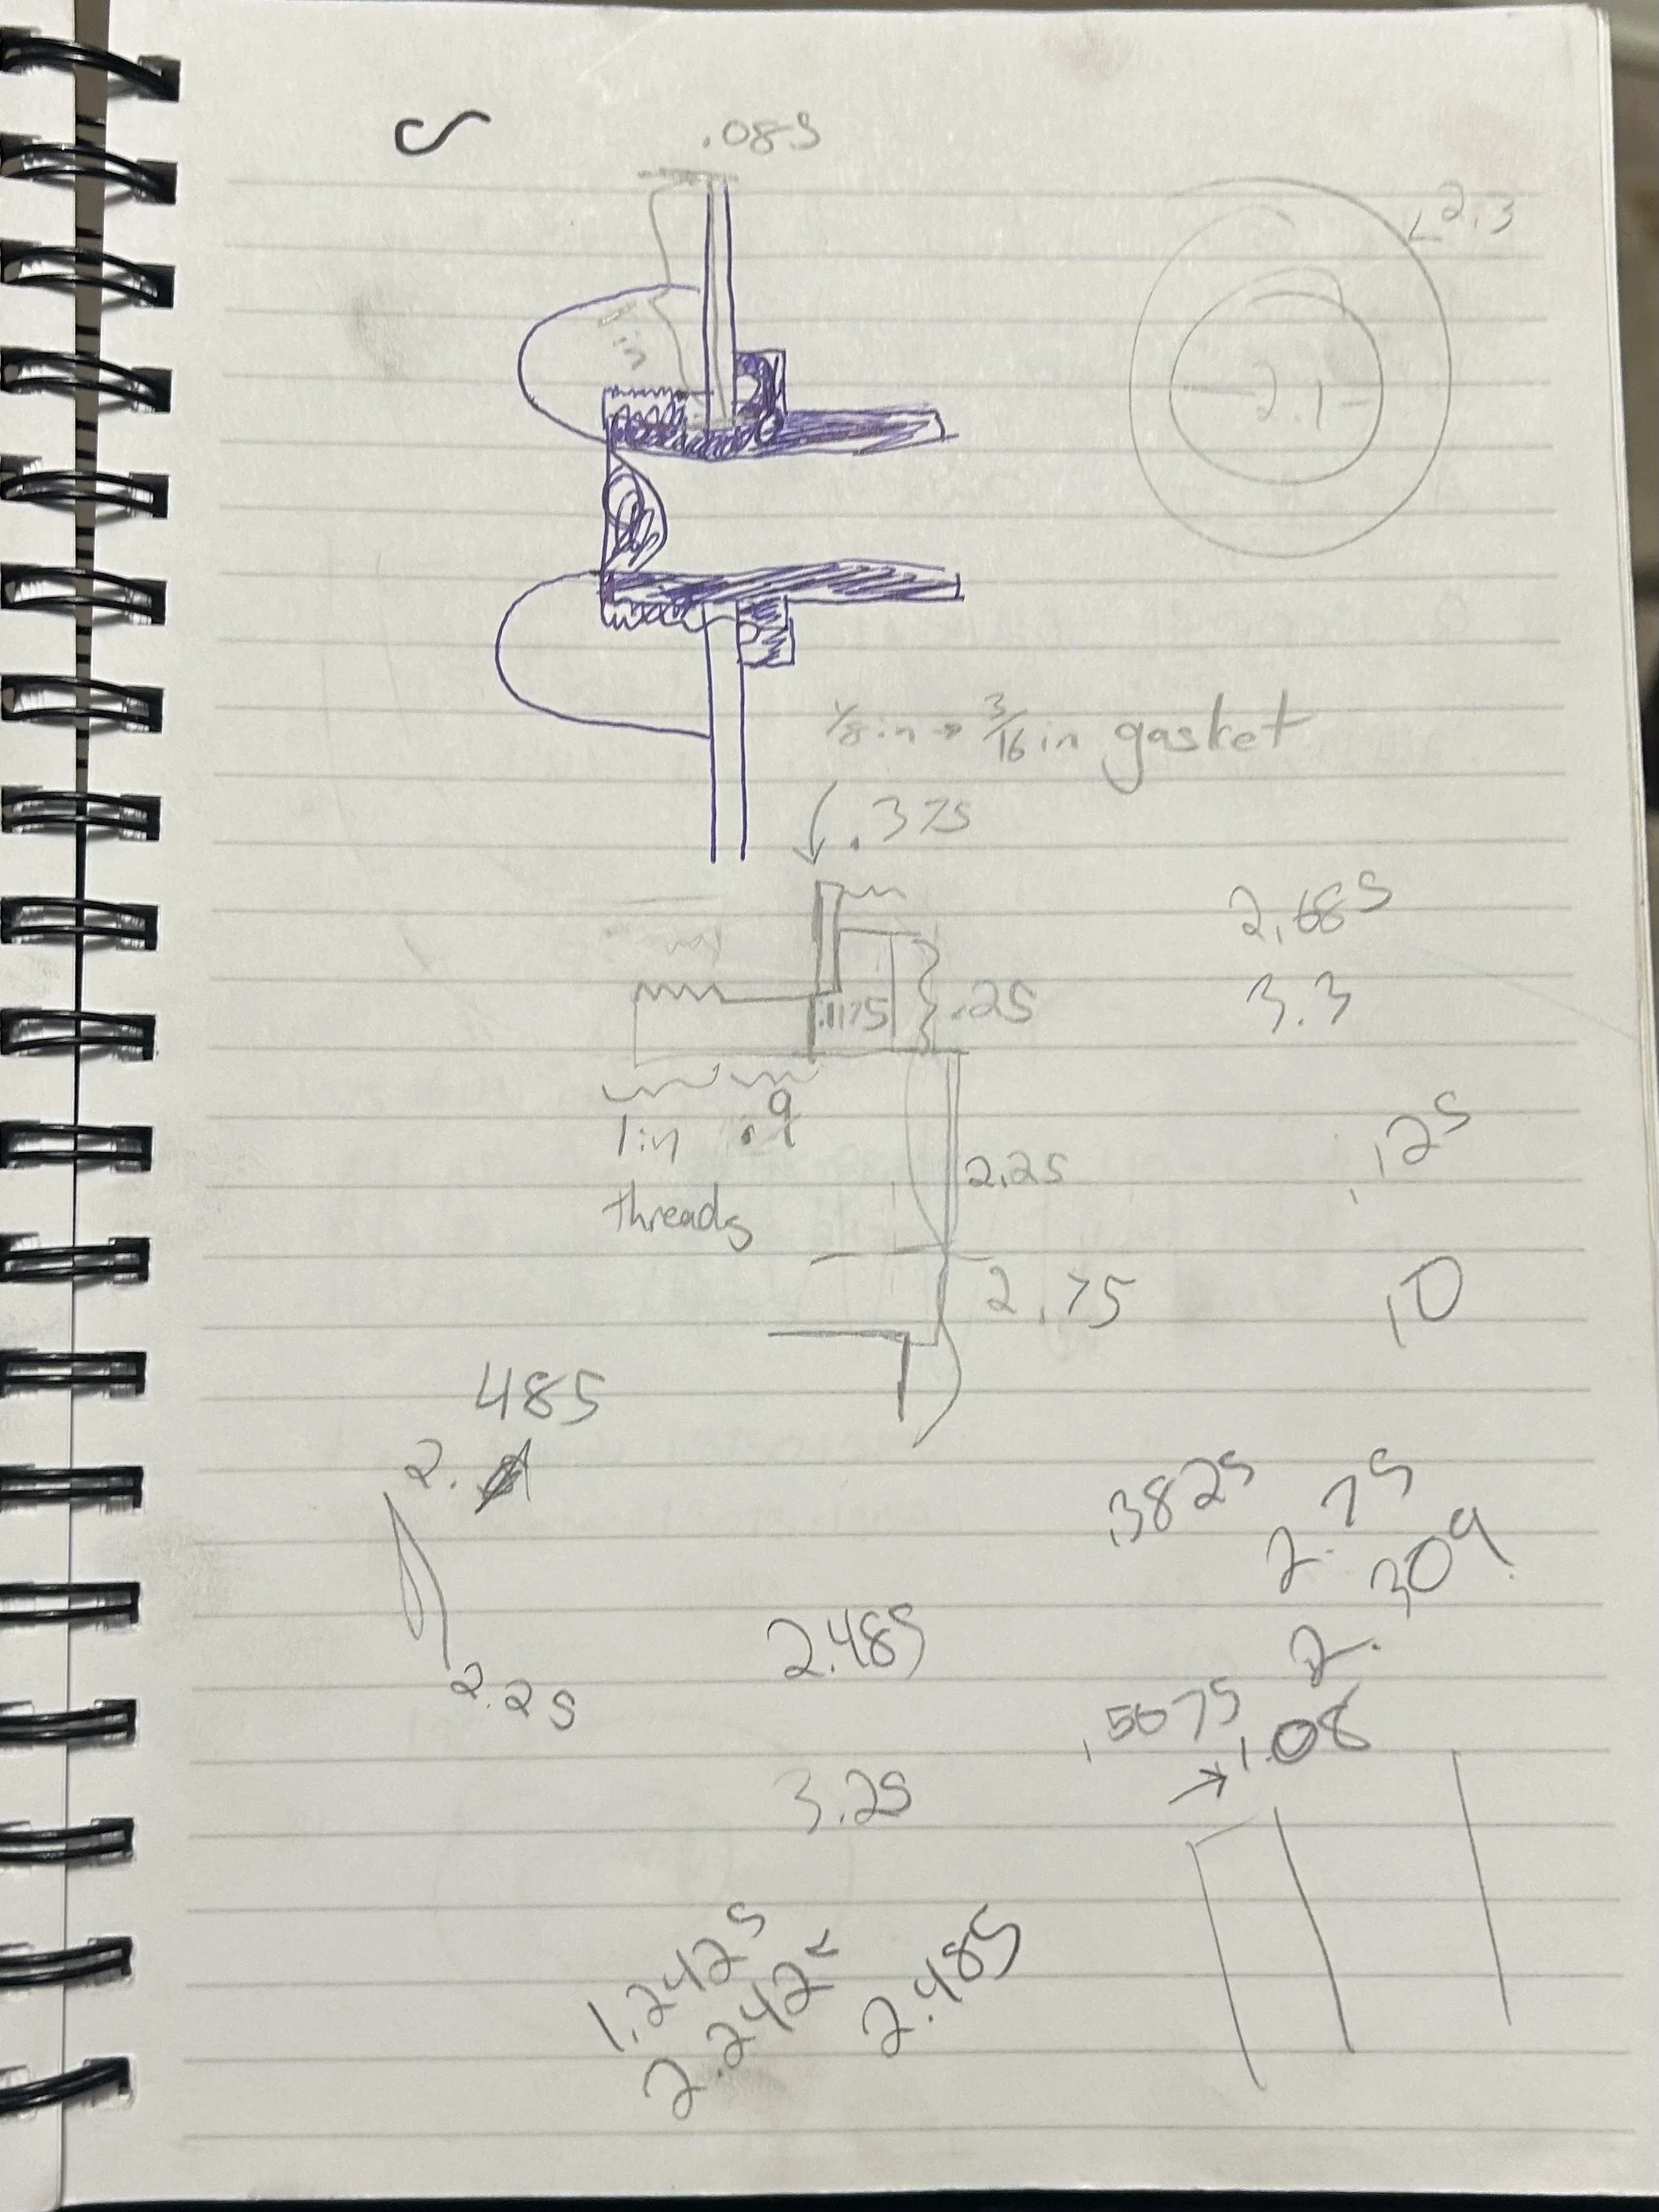 .085
2.3
1 in
2.1
1/8 in → 3/16 in gasket
.375
2.685
.1175
.25
3.3
1 in .9
threads
.125
2.25
2.75
.10
485
2.
.3825
2.75
2.309
2.485
2.25
.5675
→ 1.08
3.25
1.2425
2.242
2.485